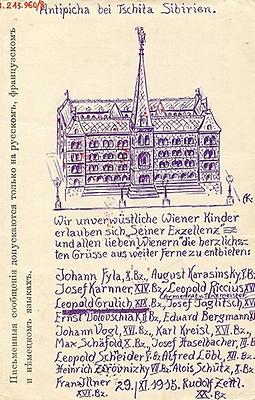 Antipicha bei Tschita Sibirien.
Письменныя сообщенія допускаются только на русскомъ, французскомъ
и нѣмецкомъ языкахъ.
Wir unverwüstliche Wiener Kinder
erlauben sich, Seiner Exzellenz
und allen lieben Wienern die herzlich-
sten Grüsse aus weiter Ferne zu entbieten:
Johann Fyla, X.Bz., August Karasinsky, V.Bz.
Josef Karnner XIV.Bz. Leopold Riccius XVI.Bz.
Leopold Grulich XI.Bz. Josef Jaglitsch XI.Bz.
Ernst XI.Bz., Eduard Bergmann XI
Johann Vogl, XVI.Bz., Karl Kreisl, XVI.Bz.
Max Schäfold X.Bz., Josef Haselbacher, III.Bz.
Leopold Schieder V.Bz. Alfred Löbl, XII.Bz.
Heinrich VII.Bz. Alois Schütz, X.Bz.
Franz Ilner 29./XI.1915. Rudolf Zettl.
XVI.Bz. XI.Bz.